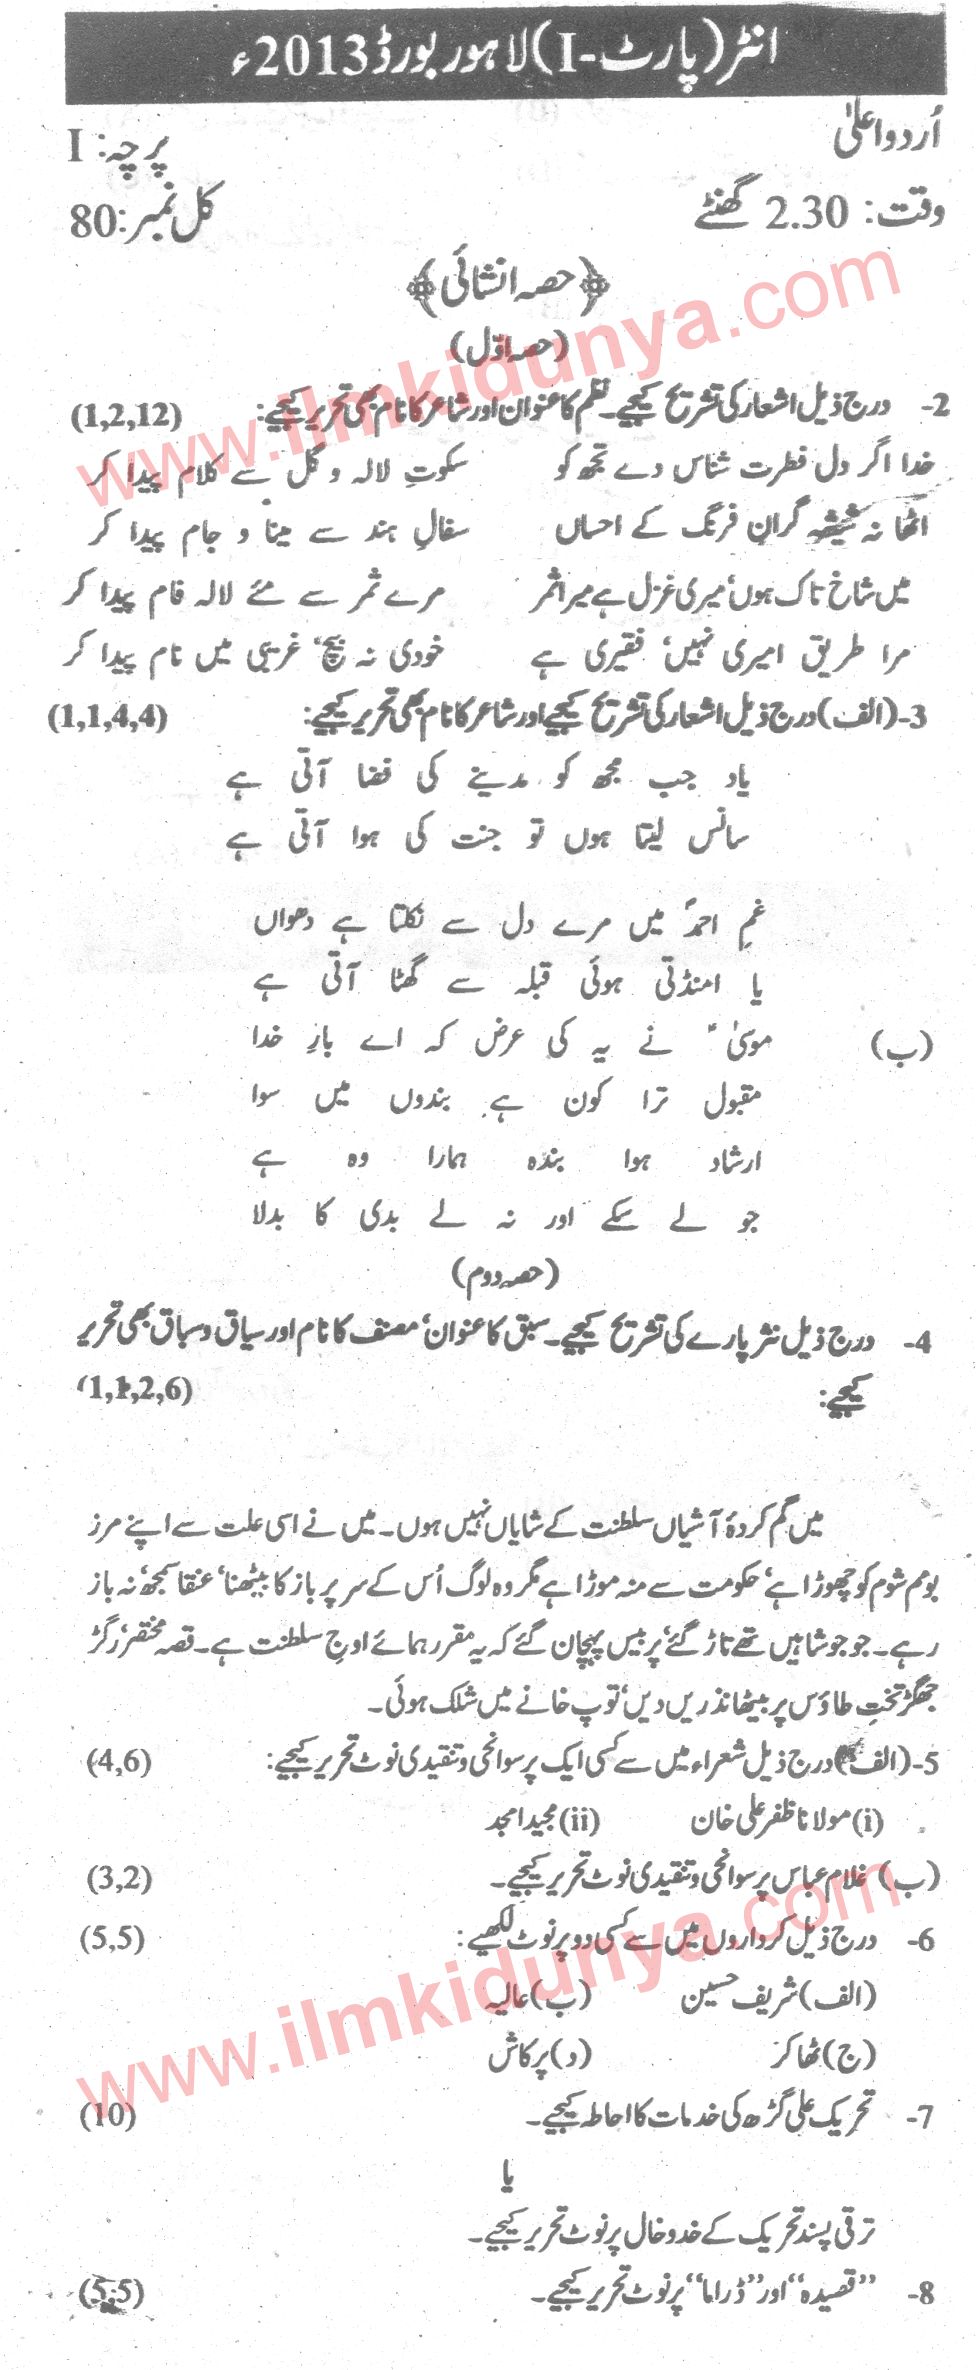 انٹر (پارٹ-I) لاہور بورڈ 2013ء
اُردو اعلیٰ پرچہ: I
وقت: 2.30 گھنٹے کل نمبر: 80
﴿حصہ انشائی﴾
(حصہ اوّل)
2- درج ذیل اشعار کی تشریح کیجیے۔ نظم کا عنوان اور شاعر کا نام بھی تحریر کیجیے: (1,2,12)
خدا اگر دل فطرت شناس دے تجھ کو سکوتِ لالہ و گل سے کلام پیدا کر
اٹھا نہ شیشہ گرانِ فرنگ کے احساں سفالِ ہند سے مینا و جام پیدا کر
میں شاخ تاک ہوں، میری غزل ہے میرا ثمر مرے ثمر سے مئے لالہ فام پیدا کر
مرا طریق امیری نہیں، فقیری ہے خودی نہ بیچ، غریبی میں نام پیدا کر
3-(الف) درج ذیل اشعار کی تشریح کیجیے اور شاعر کا نام بھی تحریر کیجیے: (1,1,4,4)
یاد جب مجھ کو مدینے کی فضا آتی ہے
سانس لیتا ہوں تو جنت کی ہوا آتی ہے
غمِ احمدؐ میں مرے دل سے نکلتا ہے دھواں
یا امنڈتی ہوئی قبلہ سے گھٹا آتی ہے
(ب) موسیٰؑ نے یہ کی عرض کہ اے بارِ خدا
مقبول ترا کون ہے بندوں میں سوا
ارشاد ہوا بندہ ہمارا وہ ہے
جو لے سکے اور نہ لے بدی کا بدلا
(حصہ دوم)
4- درج ذیل نثر پارے کی تشریح کیجیے۔ سبق کا عنوان، مصنف کا نام اور سیاق و سباق بھی تحریر
کیجیے: (1,1,2,6)
میں گم کردۂ آشیاں سلطنت کے شایاں نہیں ہوں۔ میں نے اسی علت سے اپنے مرز
بوم شوم کو چھوڑا ہے، حکومت سے منہ موڑا ہے مگر وہ لوگ اُس کے سر پر باز کا بیٹھنا، عنقا سمجھ، نہ باز
رہے۔ جو جو شاہیں تھے تاڑ گئے، پر بیس پہچان گئے کہ یہ مقرر ہمائے اوجِ سلطنت ہے۔ قصہ مختصر، رگڑ
جھگڑ تختِ طاؤس پر بیٹھا نذریں دیں، توپ خانے میں شلک ہوئی۔
5-(الف) درج ذیل شعراء میں سے کسی ایک پر سوانحی و تنقیدی نوٹ تحریر کیجیے: (4,6)
(i) مولانا ظفر علی خان (ii) مجید امجد
(ب) غلام عباس پر سوانحی و تنقیدی نوٹ تحریر کیجیے۔ (3,2)
6- درج ذیل کرداروں میں سے کسی دو پر نوٹ لکھیے: (5,5)
(الف) شریف حسین (ب) عالیہ
(ج) ٹھاکر (د) پرکاش
7- تحریک علی گڑھ کی خدمات کا احاطہ کیجیے۔ (10)
یا
ترقی پسند تحریک کے خدوخال پر نوٹ تحریر کیجیے۔
8- ”قصیدہ“ اور ”ڈراما“ پر نوٹ تحریر کیجیے۔ (5,5)
www.ilmkidunya.com
www.ilmkidunya.com